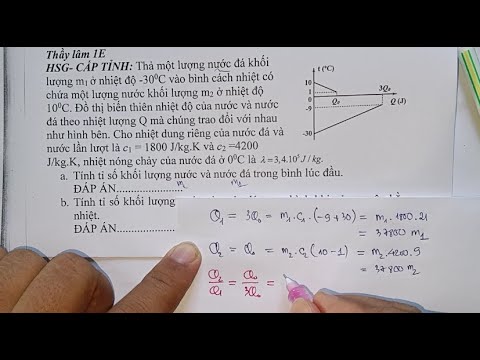 Thầy lâm 1E
HSG- CẤP TỈNH: Thả một lượng nước đá khối
lượng m₁ ở nhiệt độ -30⁰C vào bình cách nhiệt có
chứa một lượng nước khối lượng m₂ ở nhiệt độ
10⁰C. Đồ thị biến thiên nhiệt độ của nước và nước
đá theo nhiệt lượng Q mà chúng trao đổi với nhau
như hình bên. Cho nhiệt dung riêng của nước đá và
nước lần lượt là c₁ = 1800 J/kg.K và c₂ =4200
J/kg.K, nhiệt nóng chảy của nước đá ở 0⁰C là λ=3,4.10⁵J/kg.
a. Tính tỉ số khối lượng nước và nước đá trong bình lúc đầu.
ĐÁP ÁN
m₁
b. Tính tỉ số khối lượng
nhiệt.
ĐÁP ÁN
t (⁰C)
10
1
0
-9
-30
Q₀
3Q₀
Q (J)
Q₁ = 3Q₀ = m₁.c₁.(-9+30) = m₁.1800.21
= 37800 m₁
Q₂ = Q₀ = m₂.c₂(10-1) = m₂.4200.9
= 37800 m₂
Q₂/Q₁ = Q₀/3Q₀ =